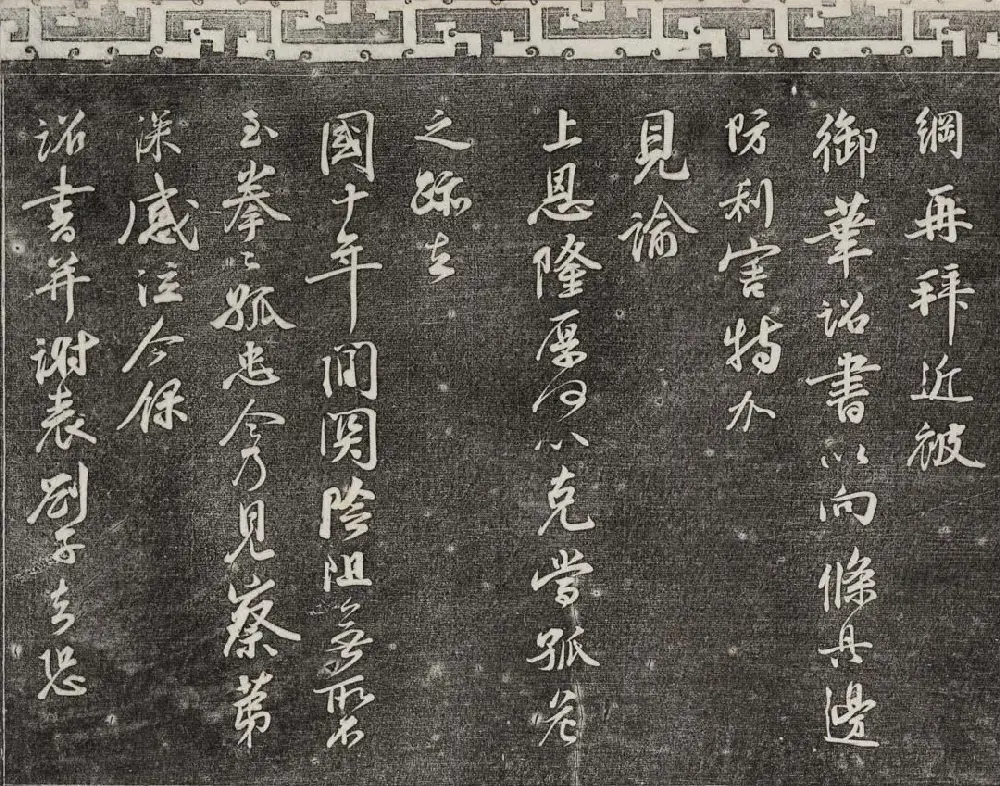 綱再拜近被
御筆詔書以向條具邊
防利害特加
見諭
上恩隆厚何以克當孤危
之跡去
國十年間関險阻無所不
至拳〻孤忠今乃見察第
深感泣今保
詔書并謝表劄子去恐